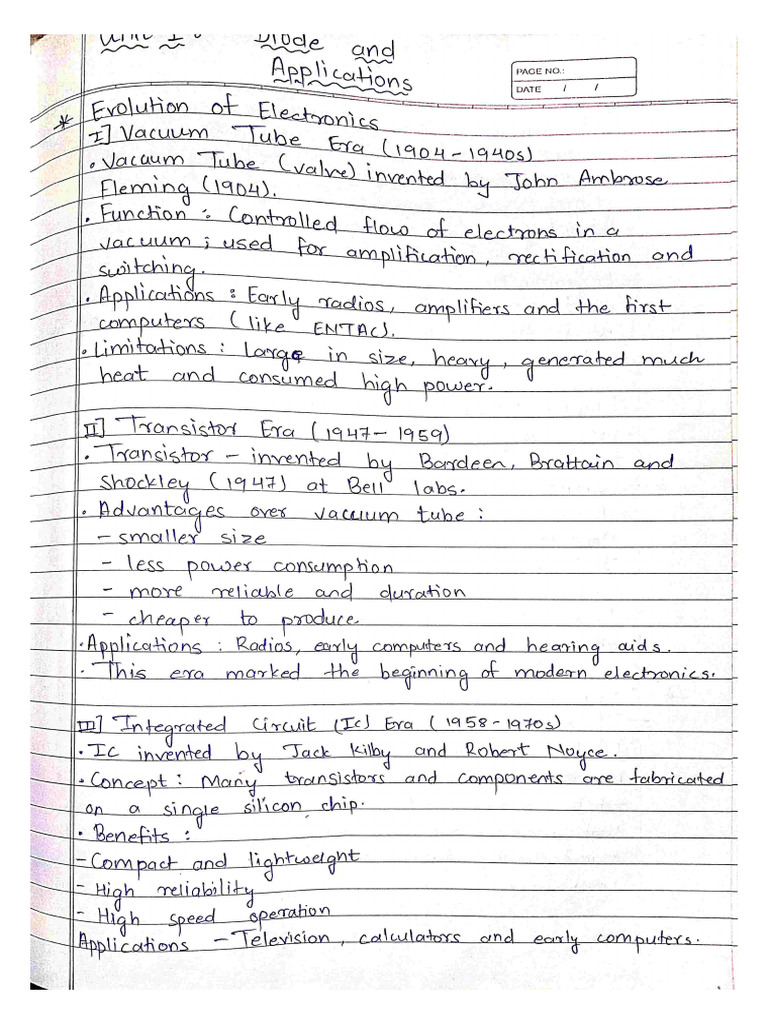 Unit I : Diode and
Applications
PAGE NO.:
DATE / /
* Evolution of Electronics
I] Vacuum Tube Era (1904-1940s)
• Vacuum Tube (valve) invented by John Ambrose
Fleming (1904).
• Function : Controlled flow of electrons in a
vacuum ; used for amplification, rectification and
switching.
• Applications : Early radios, amplifiers and the first
computers (like ENIAC).
• Limitations : Large in size, heavy, generated much
heat and consumed high power.
II] Transistor Era (1947-1959)
• Transistor - invented by Bardeen, Brattain and
Shockley (1947) at Bell labs.
• Advantages over vacuum tube :
- smaller size
- less power consumption
- more reliable and duration
- cheaper to produce
• Applications : Radios, early computers and hearing aids.
• This era marked the beginning of modern electronics.
III] Integrated Circuit (Ic) Era (1958-1970s)
• IC invented by Jack Kilby and Robert Noyce.
• Concept : Many transistors and components are fabricated
on a single silicon chip.
• Benefits :
- Compact and lightweight
- High reliability
- High speed operation
Applications - Television, calculators and early computers.